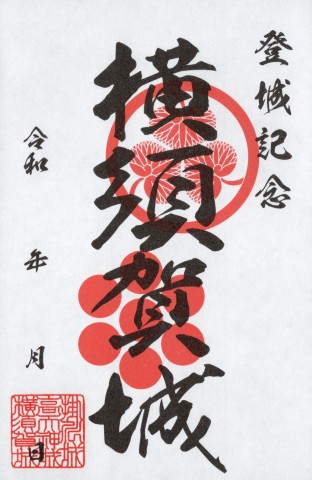 登城記念
横須賀城
令和 年 月 日